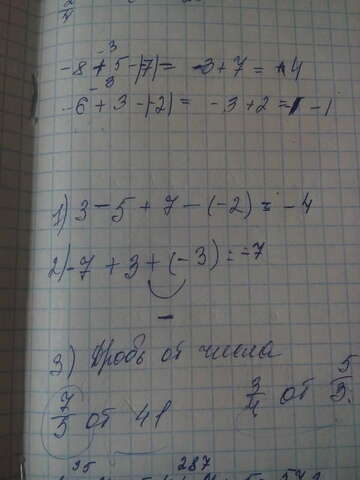 2/4
-3
-8+5-(-7)= -3+7 = +4
-3
-6+3-(-2)= -3+2=-1
1) 3-5+7-(-2)=-4
2) -7+3+(-3)=-7
-
3) Дробь от числа
7/5 от 41 3/4 от 5/3.
35 287